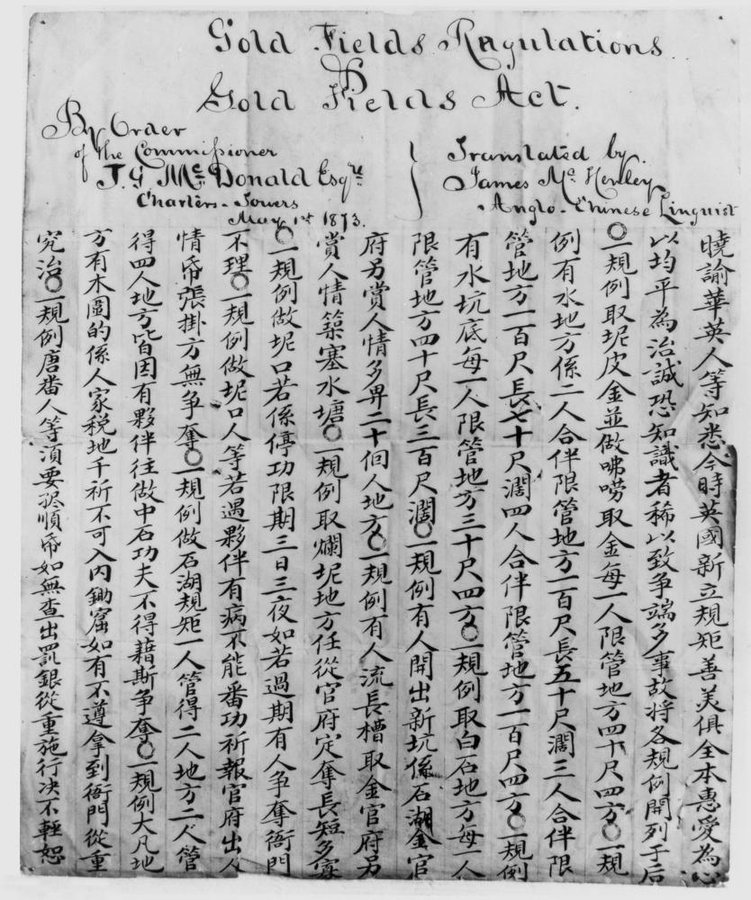 Gold Fields Regulations
&
Gold Fields Act.
By Order
of the Commissioner
T. G McDonald Esqre
Charters-Towers
May 1st 1873.
Translated by.
James Mc Henley
Anglo-Chinese Linguist
曉諭華英人等知悉今時英國新立規矩善美俱全本惠愛為心
以均平為治誠恐知識者稀以致争端多事故將各規例開列于后
〇一規例取坭皮金並做咈嘮取金每一人限管地方四十尺四方〇一規
例有水地方係二人合伴限管地方一百尺長五十尺濶三人合伴限
管地方一百尺長七十尺濶四人合伴限管地方一百尺四方〇一規例
有水坑底每一人限管地方三十尺四方〇一規例取白石地方每一人
限管地方四十尺長三百尺濶〇一規例有人開出新坑係石湖金官
府另賞人情多畀二十個人地方〇一規例有人流長槽取金官府另
賞人情築塞水塘〇一規例取爛坭地方任從官府定奪長短多寡
〇一規例做坭口若係停功限期三日三夜如若過期有人争奪衙門
不理〇一規例做坭口人等若過夥伴有病不能番功祈報官府出人
情帋張掛方無争奪〇一規例做石湖規矩一人管得二人地方二人管
得四人地方皆因有夥伴往做中石功夫不得藉斯争奪〇一規例大凡地
方有木圍的係人家税地千祈不可入内鋤窟如有不遵拿到衙門從重
究治〇一規例唐畨人等須要孖順帋如無查出罰銀從重施行决不輕恕